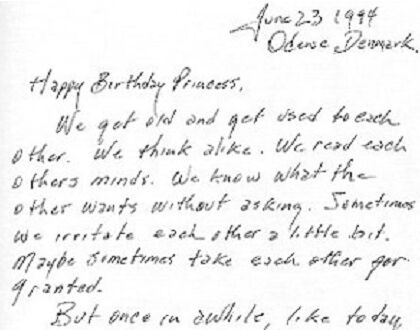 June 23 1994
Odense Denmark.
Happy Birthday Princess,
We get old and get used to each
other. We think alike. We read each
others minds. We know what the
other wants without asking. Sometimes
we irritate each other a little bit.
Maybe sometimes take each other for
granted.
But once in awhile, like today,